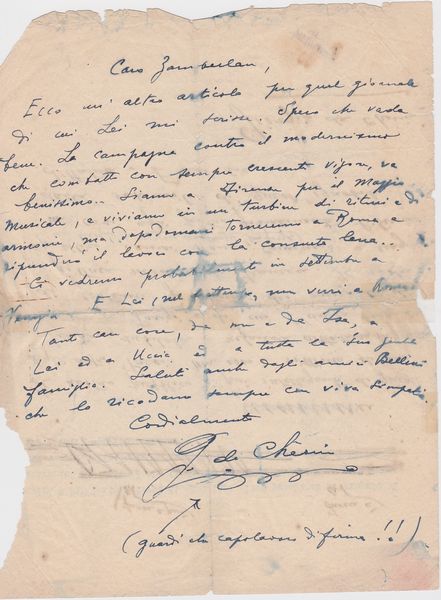 Caro Zamberlan,
Ecco un' altro articolo per quel giornale
di cui Lei mi scrisse. Spero che vada
bene. La campagna contro il modernismo
che combatti con sempre crescente vigore, va
benissimo. Siamo a Firenze per il Maggio
Musicale, e viviamo in un turbine di ritmi e di
armonie, ma dopodomani torneremo a Roma a
riprendere il lavoro con la consueta lena..
Ci vedremo probabilmente in settembre a
Venezia E Lei, (nel frattempo, non verrà a Roma?
Tante care cose, da me e da Isa, a
Lei ed a Uccia ed a tutta la Sua gentile
famiglia. Saluti anche dagli amici Bellini
che la ricordano sempre con viva simpatia
Cordialmente
G. de Chirico
(guardi che capolavoro di firma!!)